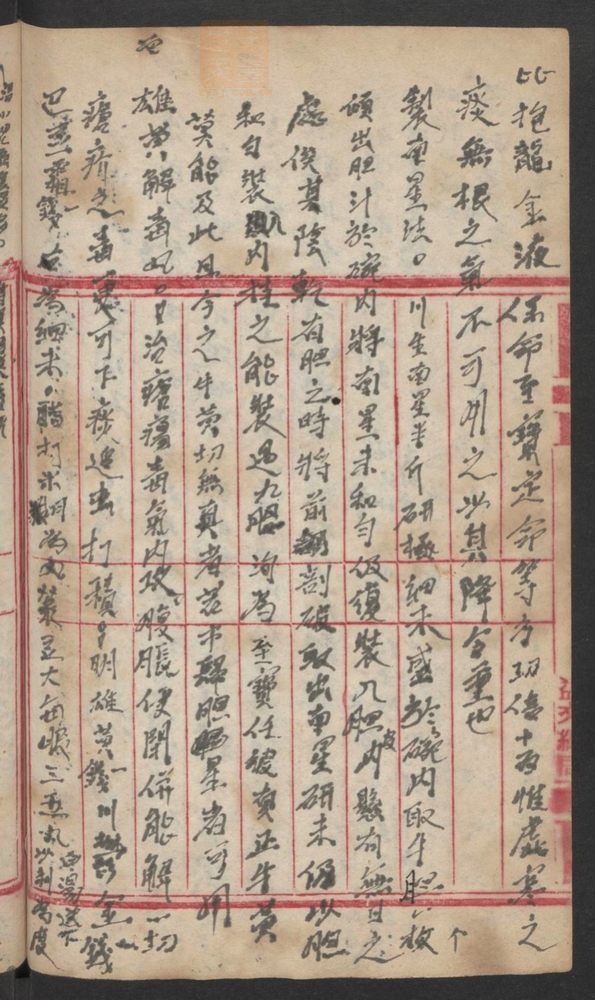 比抱龍金液保命至寶定命等方功倍十百惟虛寒之
痰無根之氣不可用之以其降令重也
製南星法。川生南星半斤研極細末盛於碗內取牛膽八枚
傾出胆汁於碗內將南星末和勻仍復裝入胆皮內懸有無日之
處俟其陰乾有胆之時將前胆剖破取出南星研末仍以胆
和勻裝入內挂之能裝過九胆洵為至寶任彼真正牛黃
莫能及此且今之牛黃切無真者若市肆胆星者可用
雄黃解毒丸。治瘡瘍毒氣內攻腹脹便閉併能解一切
瘡疥之毒更可下痰追虫打積。明雄黃一錢川鬱金一錢
巴豆霜一錢右為細末。醋打米糊為丸菉豆大每服三五丸以利為度